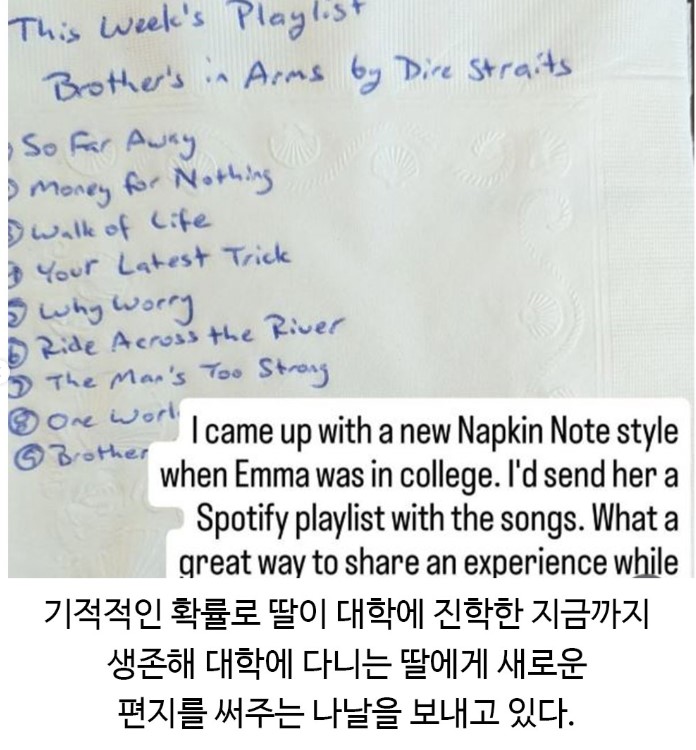 This Week's Playlist
Brother's in Arms by Dire Straits
So Far Away
Money for Nothing
Walk of Life
Your Latest Trick
⑤ Why Worry
⑥ Ride Across the River
⑦ The Man's Too Strong
⑧ One Worl
⑨ Brother
I came up with a new Napkin Note style
when Emma was in college. I'd send her a
Spotify playlist with the songs. What a
great way to share an experience while
기적적인 확률로 딸이 대학에 진학한 지금까지
생존해 대학에 다니는 딸에게 새로운
편지를 써주는 나날을 보내고 있다.